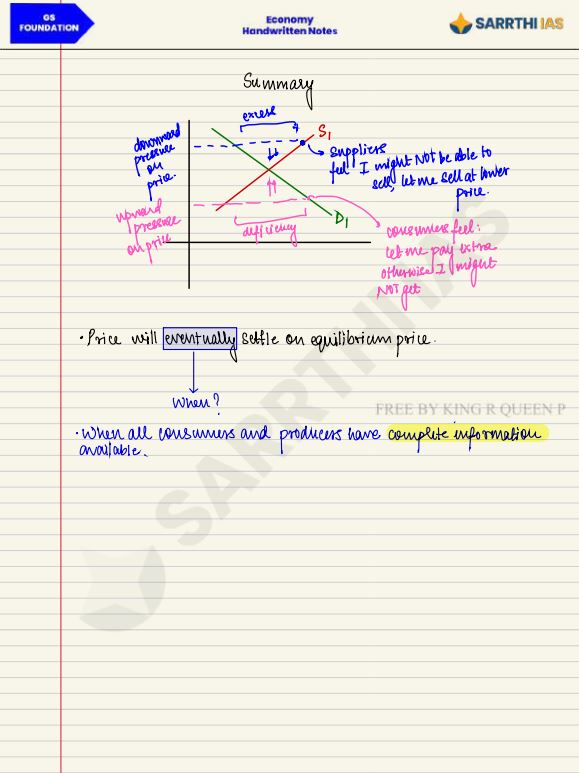 GS
FOUNDATION
Economy
Handwritten Notes
SARRTHI IAS
Summary
excess
S1
downward
pressure
on
price.
suppliers
feel I might NOT be able to
sell, let me sell at lower
price.
upward
pressure
on price
deficiency
D1
consumers feel:
Let me pay extra
otherwise I might
NOT get
• Price will eventually settle on equilibrium price.
When?
FREE BY KING R QUEEN P
• When all consumers and producers have complete information
available.
SARRTHI IAS